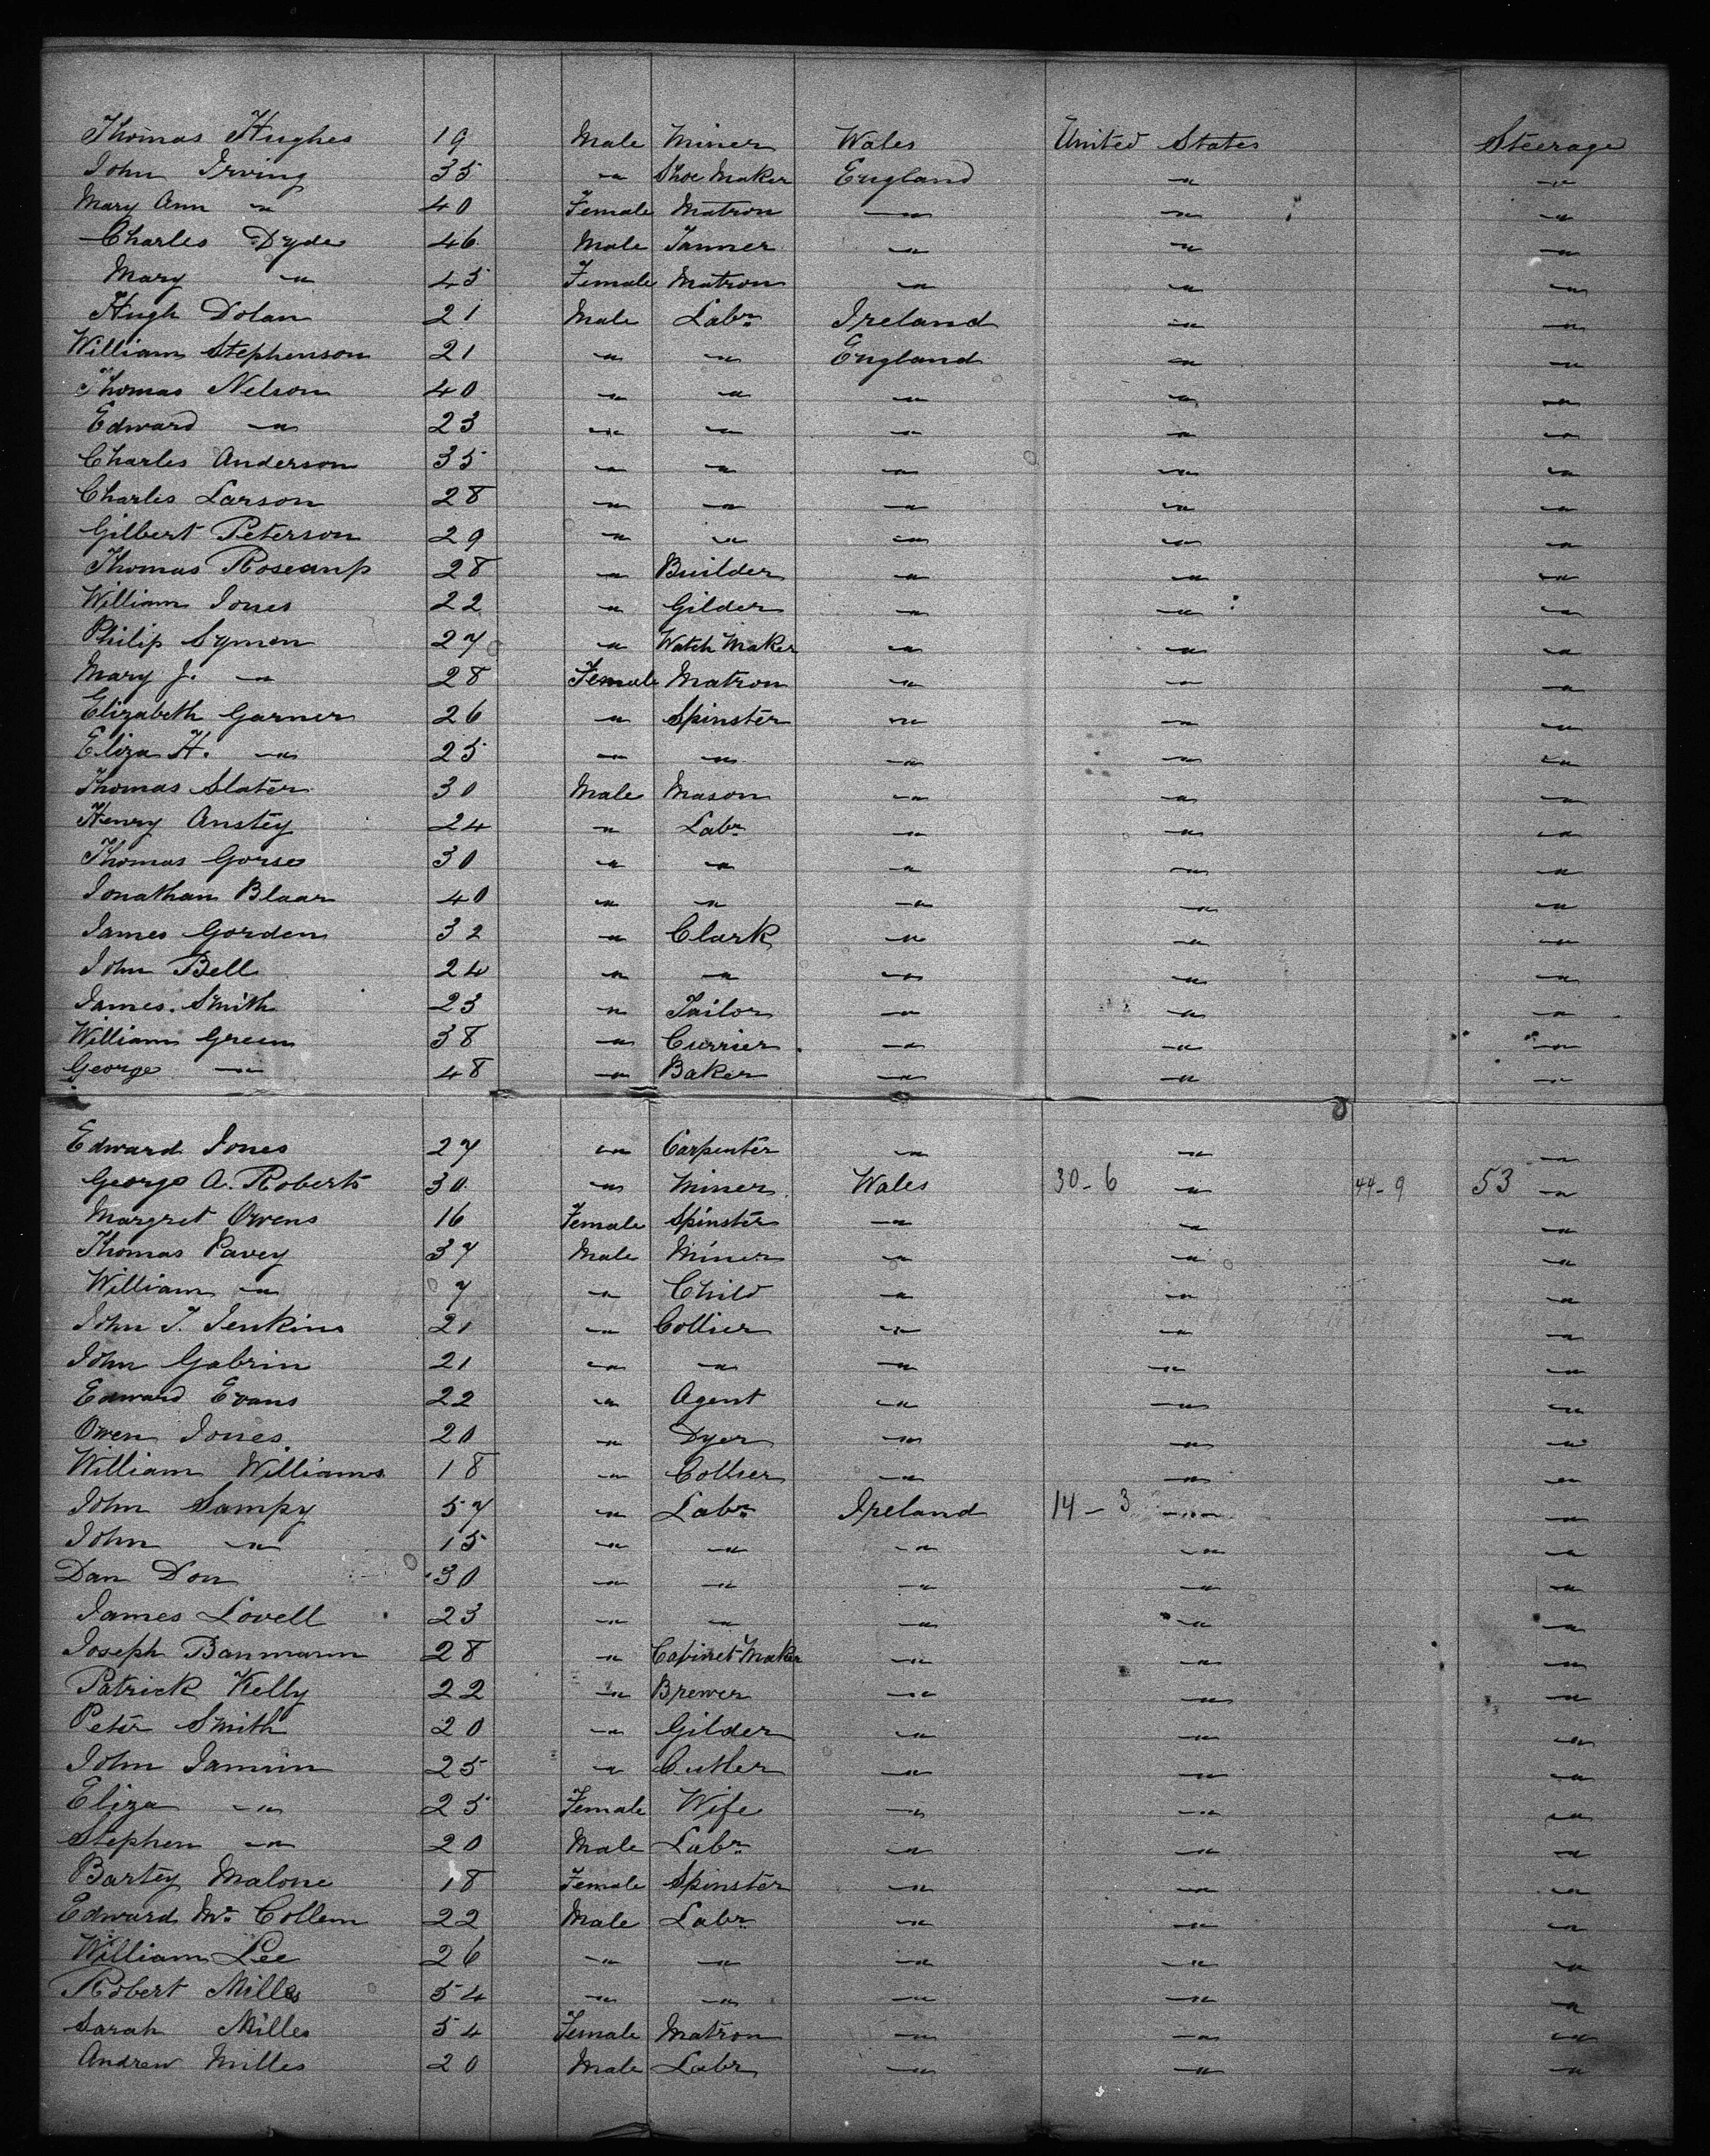 Thomas Hughes 19 Male Miner Wales United States Steerage
John Irving 35 " Shoe Maker England " "
Mary Ann " 40 Female Matron " " "
Charles Dyde 46 Male Tanner " " "
Mary " 45 Female Matron " " "
Hugh Dolan 21 Male Labr Ireland " "
William Stephenson 21 " " England " "
Thomas Nelson 40 " " " " "
Edward " 23 " " " " "
Charles Anderson 35 " " " " "
Charles Larson 28 " " " " "
Gilbert Peterson 29 " " " " "
Thomas 28 " Builder " " "
William Jones 22 " Gilder " " "
Philip Symon 27 " Watch Maker " " "
Mary J. " 28 Female Matron " " "
Elizabeth Garner 26 " Spinster " " "
Eliza H. " 25 " " " " "
Thomas Slater 30 Male Mason " " "
Henry Anstey 24 " Labr " " "
Thomas Gorse 30 " " " " "
Jonathan Blaar 40 " " " " "
James Gorden 32 " Clark " " "
John Bell 24 " " " " "
James Smith 23 " Tailor " " "
William Green 38 " Currier " " "
George " 48 " Baker " " "
Edward Jones 27 " Carpenter " " "
George A. Roberts 30 " Miner Wales 30-6 " 44-9 53 "
Margret Owens 16 Female Spinster " " "
Thomas Pavey 37 Male Miner " " "
William " 7 " Child " " "
John T. Jenkins 21 " Collier " " "
John Gabrin 21 " " " " "
Edward Evans 22 " Agent " " "
Owen Jones 20 " Dyer " " "
William Williams 18 " Collier " " "
John Sampy 57 " Labr Ireland 14-3 " "
John " 15 " " " " "
Dan Don 30 " " " " "
James Lovell 23 " " " " "
Joseph Banmann 28 " Cabinet Maker " " "
Patrick Kelly 22 " Brewer " " "
Peter Smith 20 " Gilder " " "
John Jamin 25 " Cutler " " "
Eliza " 25 Female Wife " " "
Stephen " 20 Male Labr " " "
Bartey Malone 18 Female Spinster " " "
Edward Mc Collem 22 Male Labr " " "
William Lee 26 " " " " "
Robert Milles 54 " " " " "
Sarah Milles 54 Female Matron " " "
Andrew Milles 20 Male Labr " " "